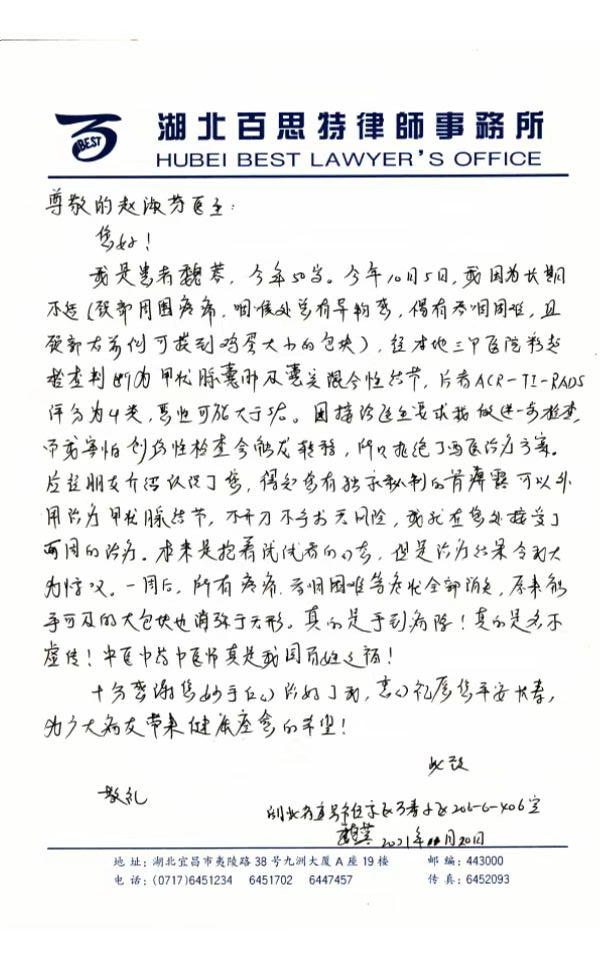 BEST
湖北百思特律師事務所
HUBEI BEST LAWYER'S OFFICE
尊敬的赵淑芳医生:
您好!
我是患者魏蓉,今年50岁。今年10月5日,我因为长期
不适(颈部周围疼痛,咽喉处总有异物感,偶有吞咽困难,且
颈部右前侧可摸到鸡蛋大小的包块),经本地三甲医院彩超
检查判断为甲状腺囊肿及囊实混合性结节,片看ACR-TI-RADS
评分为4类,恶性可能大于5%。因接诊医生要求我做进一步检查,
而我害怕创伤性检查会触发转移,所以拒绝了西医治疗方案。
后经朋友介绍认识了您,得知您有独家秘制的膏药可以外
用治疗甲状腺结节,不开刀不手术无风险,我就在您处接受了
两周的治疗。本来是抱着试试看的心态,但是治疗结果令我大
为惊叹。一周后,所有疼痛、吞咽困难等症状全部消失,原来触
手可及的大包块也消弥于无形。真的是手到病除!真的是名不
虚传!中医中药中医师真是我国百姓之福!
十分感谢您妙手仁心治好了我,衷心祝愿您平安长寿,
为广大病友带来健康痊愈的希望!
此致
敬礼
湖北省宜昌市 206-6-406室
2021年 月20日
地 址: 湖北宜昌市夷陵路 38 号九洲大厦 A 座 19 楼 邮 编: 443000
电 话: (0717)6451234 6451702 6447457 传 真: 6452093